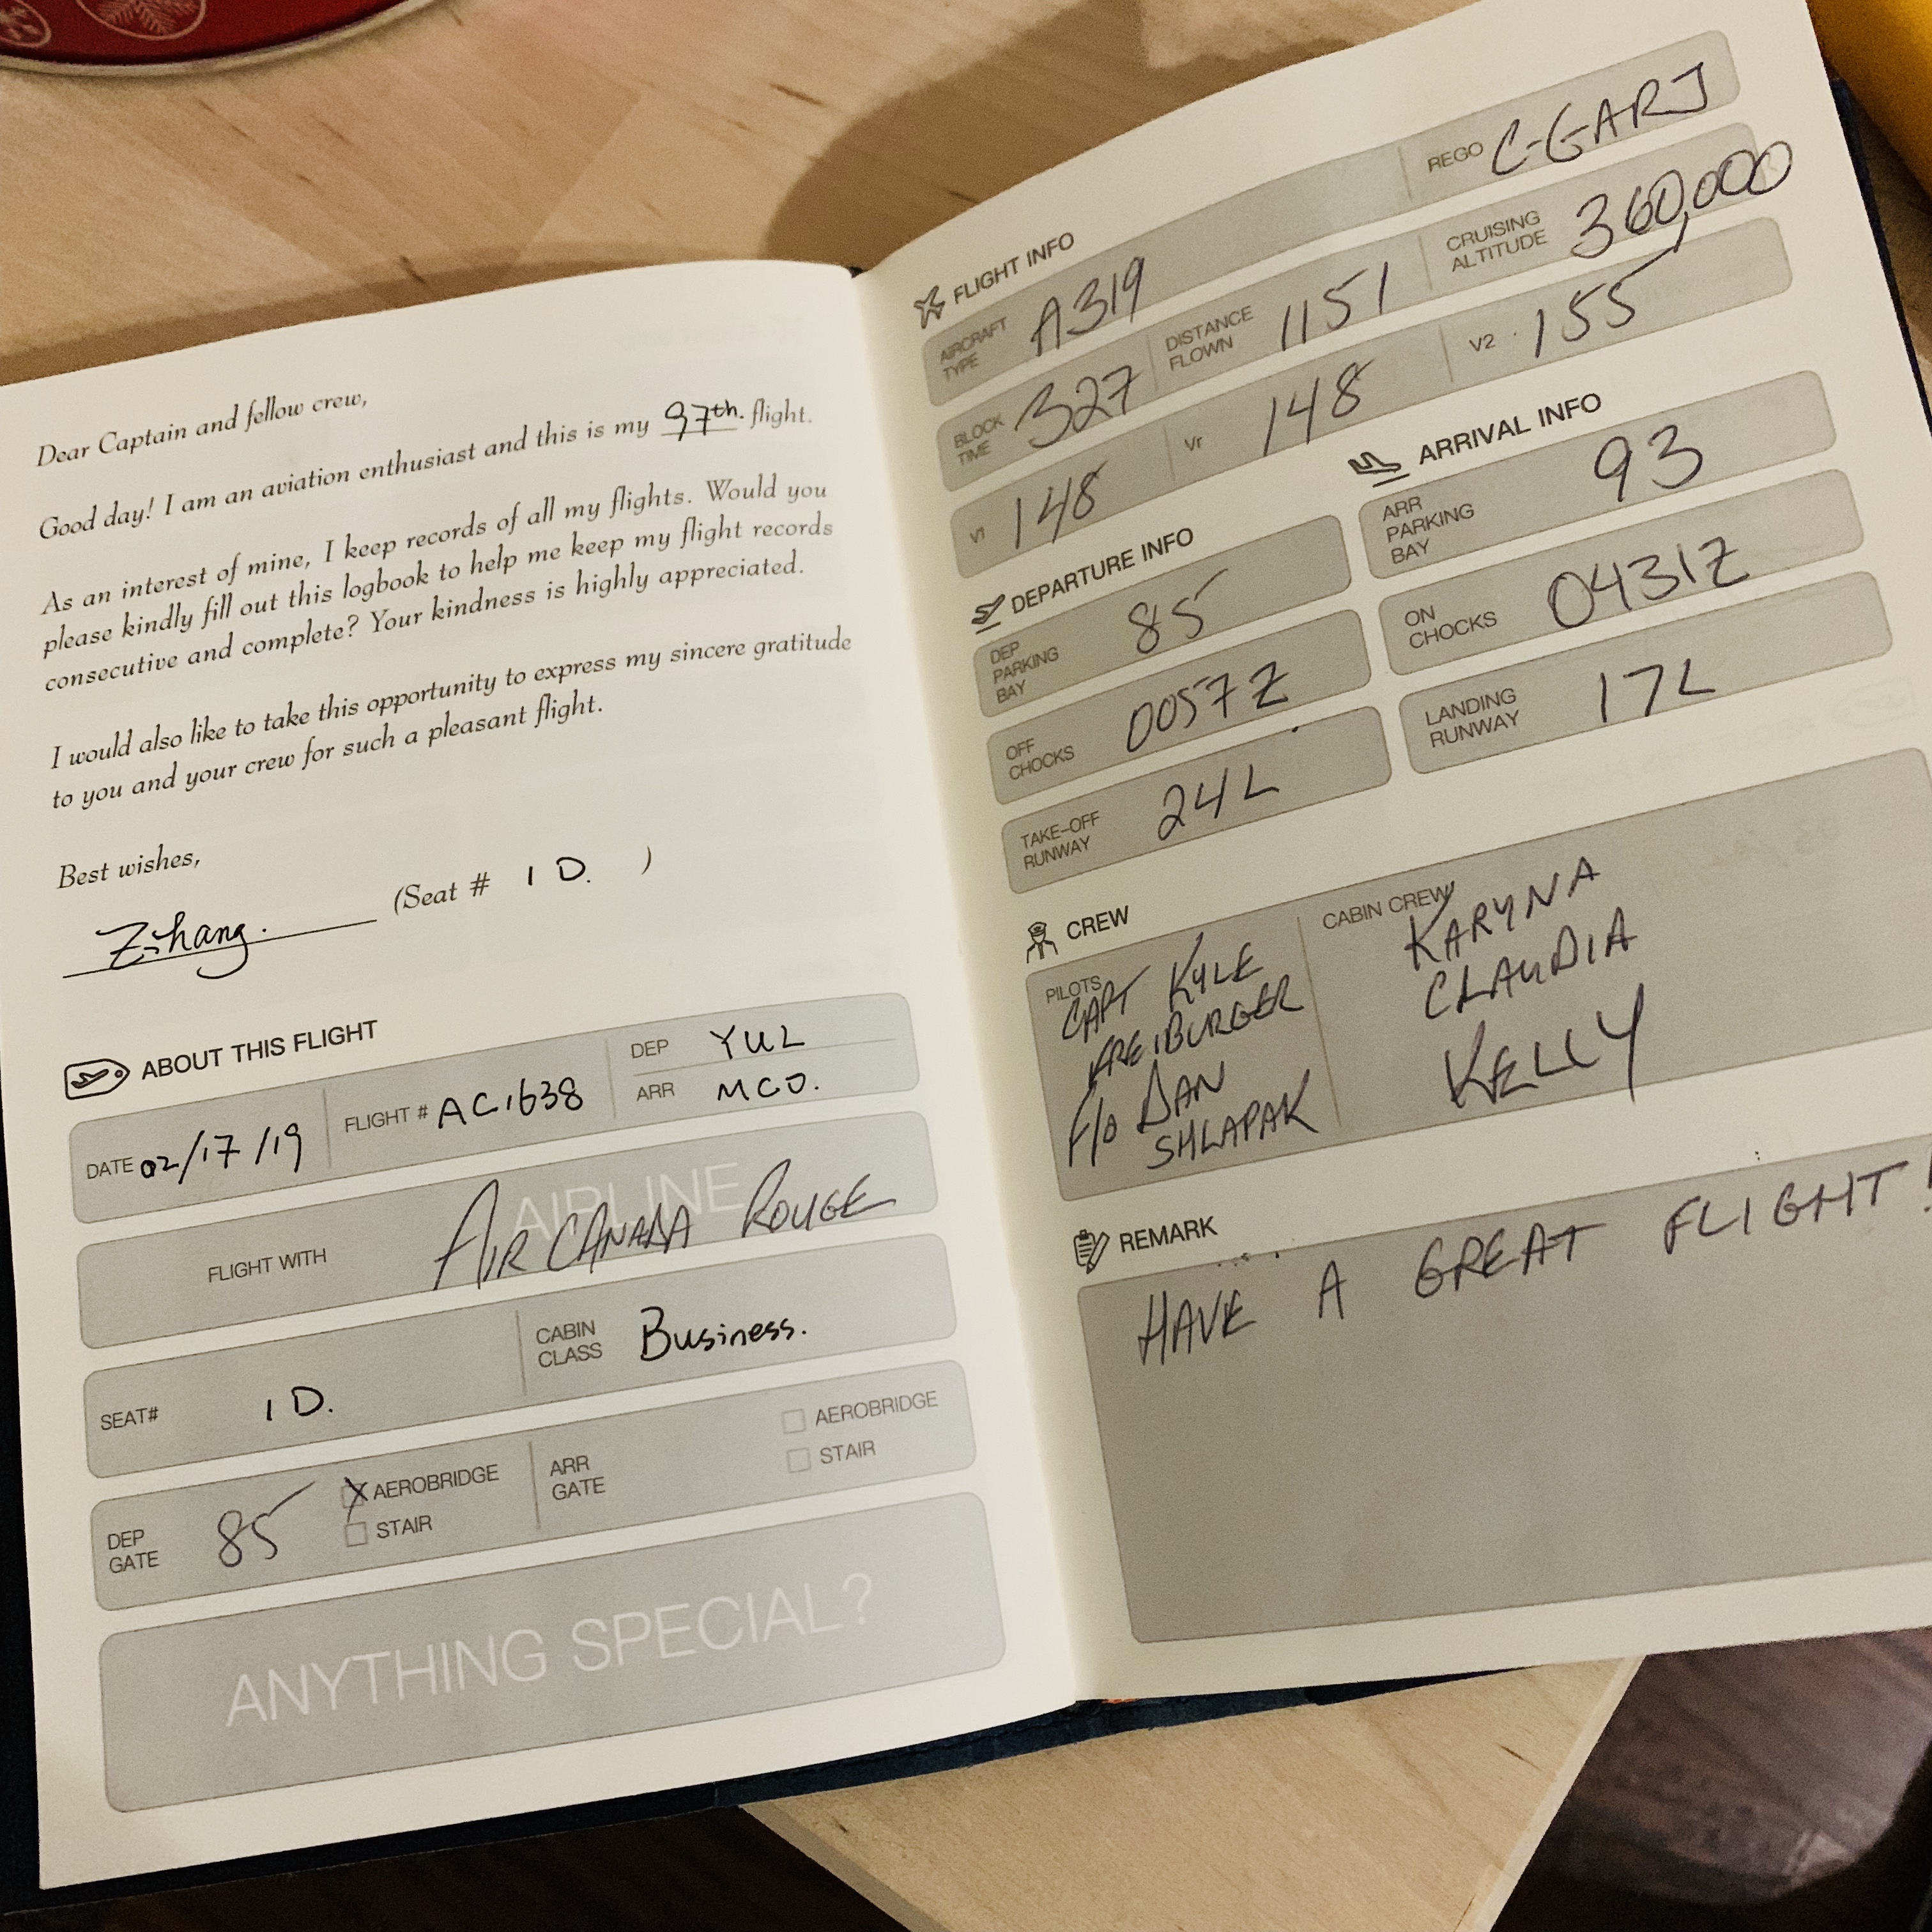 Dear Captain and fellow crew,
Good day! I am an aviation enthusiast and this is my 97th. flight.
As an interest of mine, I keep records of all my flights. Would you
please kindly fill out this logbook to help me keep my flight records
consecutive and complete? Your kindness is highly appreciated.
I would also like to take this opportunity to express my sincere gratitude
to you and your crew for such a pleasant flight.
Best wishes,
Zihang. (Seat # 1D. )
ABOUT THIS FLIGHT
DATE 02/17/19 FLIGHT # AC1638 DEP YUL
ARR MCO.
AIRLINE
FLIGHT WITH AIR CANADA ROUGE
SEAT# 1D. CABIN CLASS Business.
DEP GATE 85 X AEROBRIDGE
STAIR
ARR GATE AEROBRIDGE
STAIR
ANYTHING SPECIAL?
FLIGHT INFO
AIRCRAFT TYPE A319 REGO C-GARJ
BLOCK TIME 327 DISTANCE FLOWN 1151 CRUISING ALTITUDE 360,000
V1 148 Vr 148 V2 155
DEPARTURE INFO
DEP PARKING BAY 85
OFF CHOCKS 0057Z
TAKE-OFF RUNWAY 24L
ARRIVAL INFO
ARR PARKING BAY 93
ON CHOCKS 0431Z
LANDING RUNWAY 17L
CREW
PILOTS
CAPT KYLE
FREIBURGER
F/O DAN
SHLAPAK
CABIN CREW
KARYNA
CLAUDIA
KELLY
REMARK
HAVE A GREAT FLIGHT!